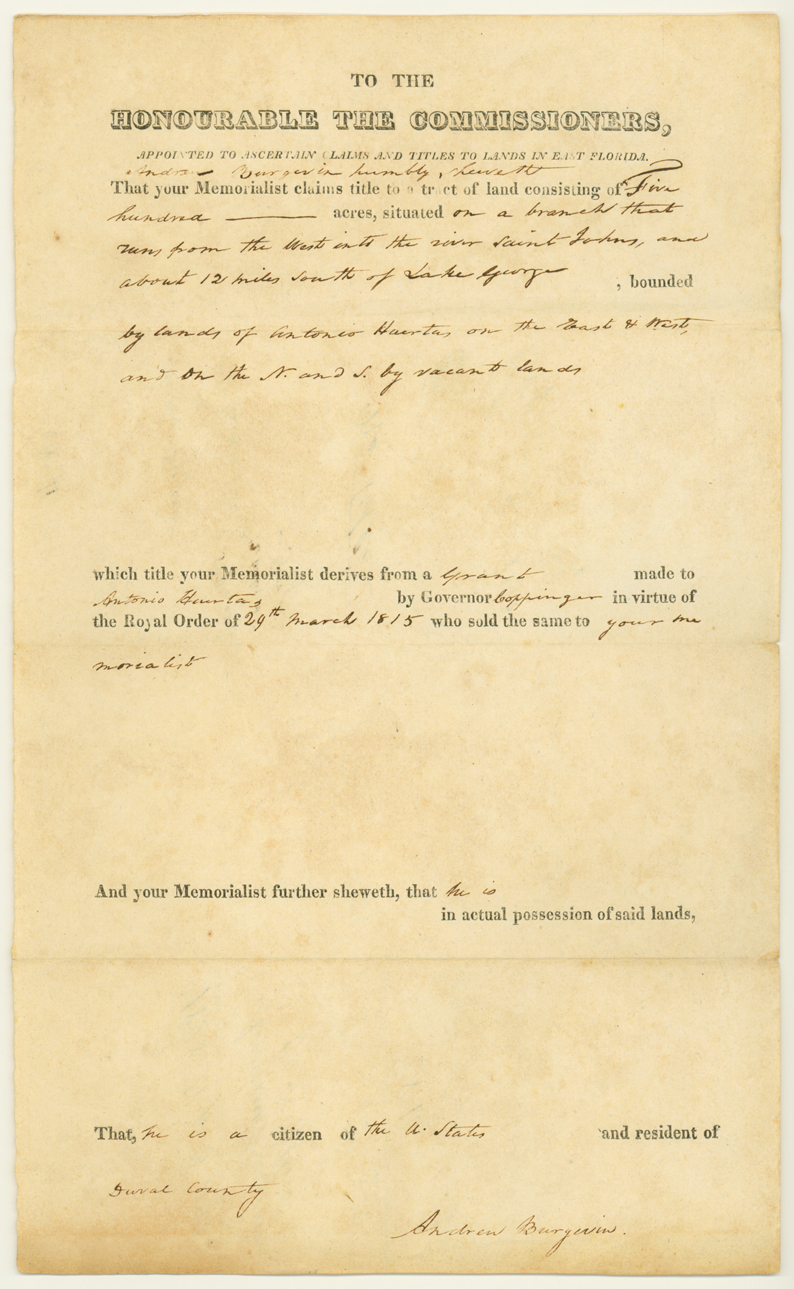 TO THE
HONOURABLE THE COMMISSIONERS,
APPOINTED TO ASCERTAIN CLAIMS AND TITLES TO LANDS IN EAST FLORIDA.
Andrew Burgevin humbly, sheweth
That your Memorialist claims title to a tract of land consisting of Five
hundred ——— acres, situated on a branch that
runs from the West into the river Saint Johns, and
about 12 miles South of Lake George , bounded
by lands of Antonio Huertas on the East & West,
and on the N. and S. by vacant lands
which title your Memorialist derives from a Grant made to
Antonio Huertas by Governor Coppinger in virtue of
the Royal Order of 29th March 1815 who sold the same to your me
morialist
And your Memorialist further sheweth, that he is
in actual possession of said lands,
That, he is a citizen of the U. States and resident of
Duval County
Andrew Burgevin.